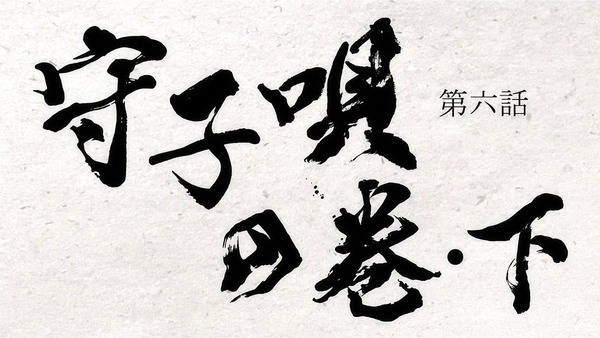 守子唄
第六話
の巻・下